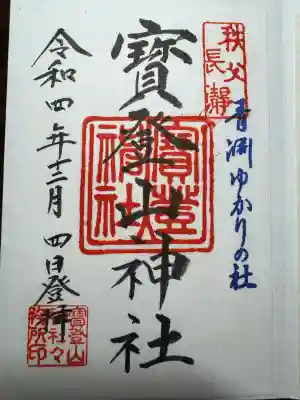 秩父
長瀞
青淵ゆかりの社
寳登山神社
寳登
山神
社
令和四年十二月四日登拝
寳登山
神社々
務所印